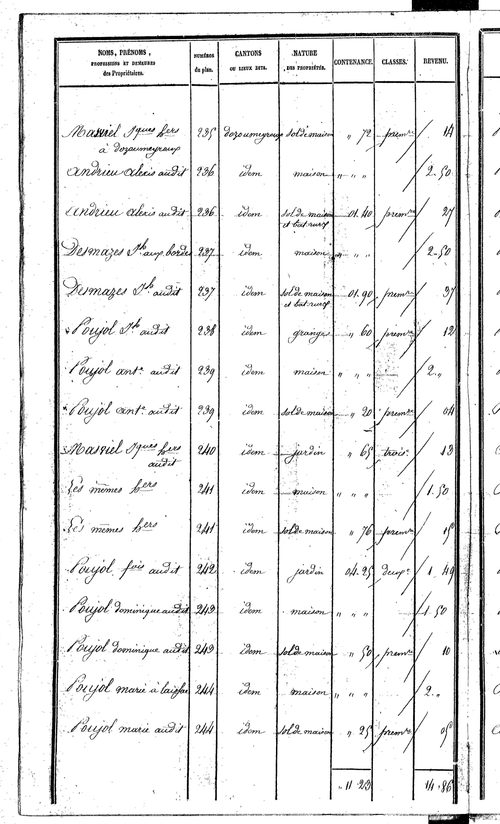 NOMS, PRÉNOMS, PROFESSIONS ET DEMEURES des Propriétaires. NUMÉROS du plan. CANTONS OU LIEUX DITS. NATURE DES PROPRIÉTÉS. CONTENANCE. CLASSES. REVENU.
Masviel Jques hers 235 dozoumeyroux sol de maison " 72 premre 14
à dozoumeyroux
Andrieu alexis audit 236 idem maison " " " 2 . 50
Andrieu alexis audit 236 idem sol de maison 01. 40 premre 27
et bat. rural
Desmazes Jh aux bordes 237 idem maison " " " 2 . 50
Desmazes Jh audit 237 idem sol de maison 01. 90 premre 37
et bat. rural
Poujol Jh audit 238 idem grange " 60 premre 12
Poujol ante audit 239 idem maison " " " 2 . "
Poujol ante audit 239 idem sol de maison " 20 premre 04
Masviel Jques hers 240 idem jardin " 65 troise 13
audit
Les mêmes hers 241 idem maison " " " 1 . 50
Les mêmes hers 241 idem sol de maison " 76 premre 15
Poujol fois audit 242 idem jardin 04. 25 deuxe 1 . 49
Poujol dominique audit 243 idem maison " " " 1 50
Poujol dominique audit 243 idem sol de maison " 50 premre 10
Poujol marie à 244 idem maison " " " 2 . "
Poujol marie audit 244 idem sol de maison " 25 premre 05
" 11 23 14 . 86